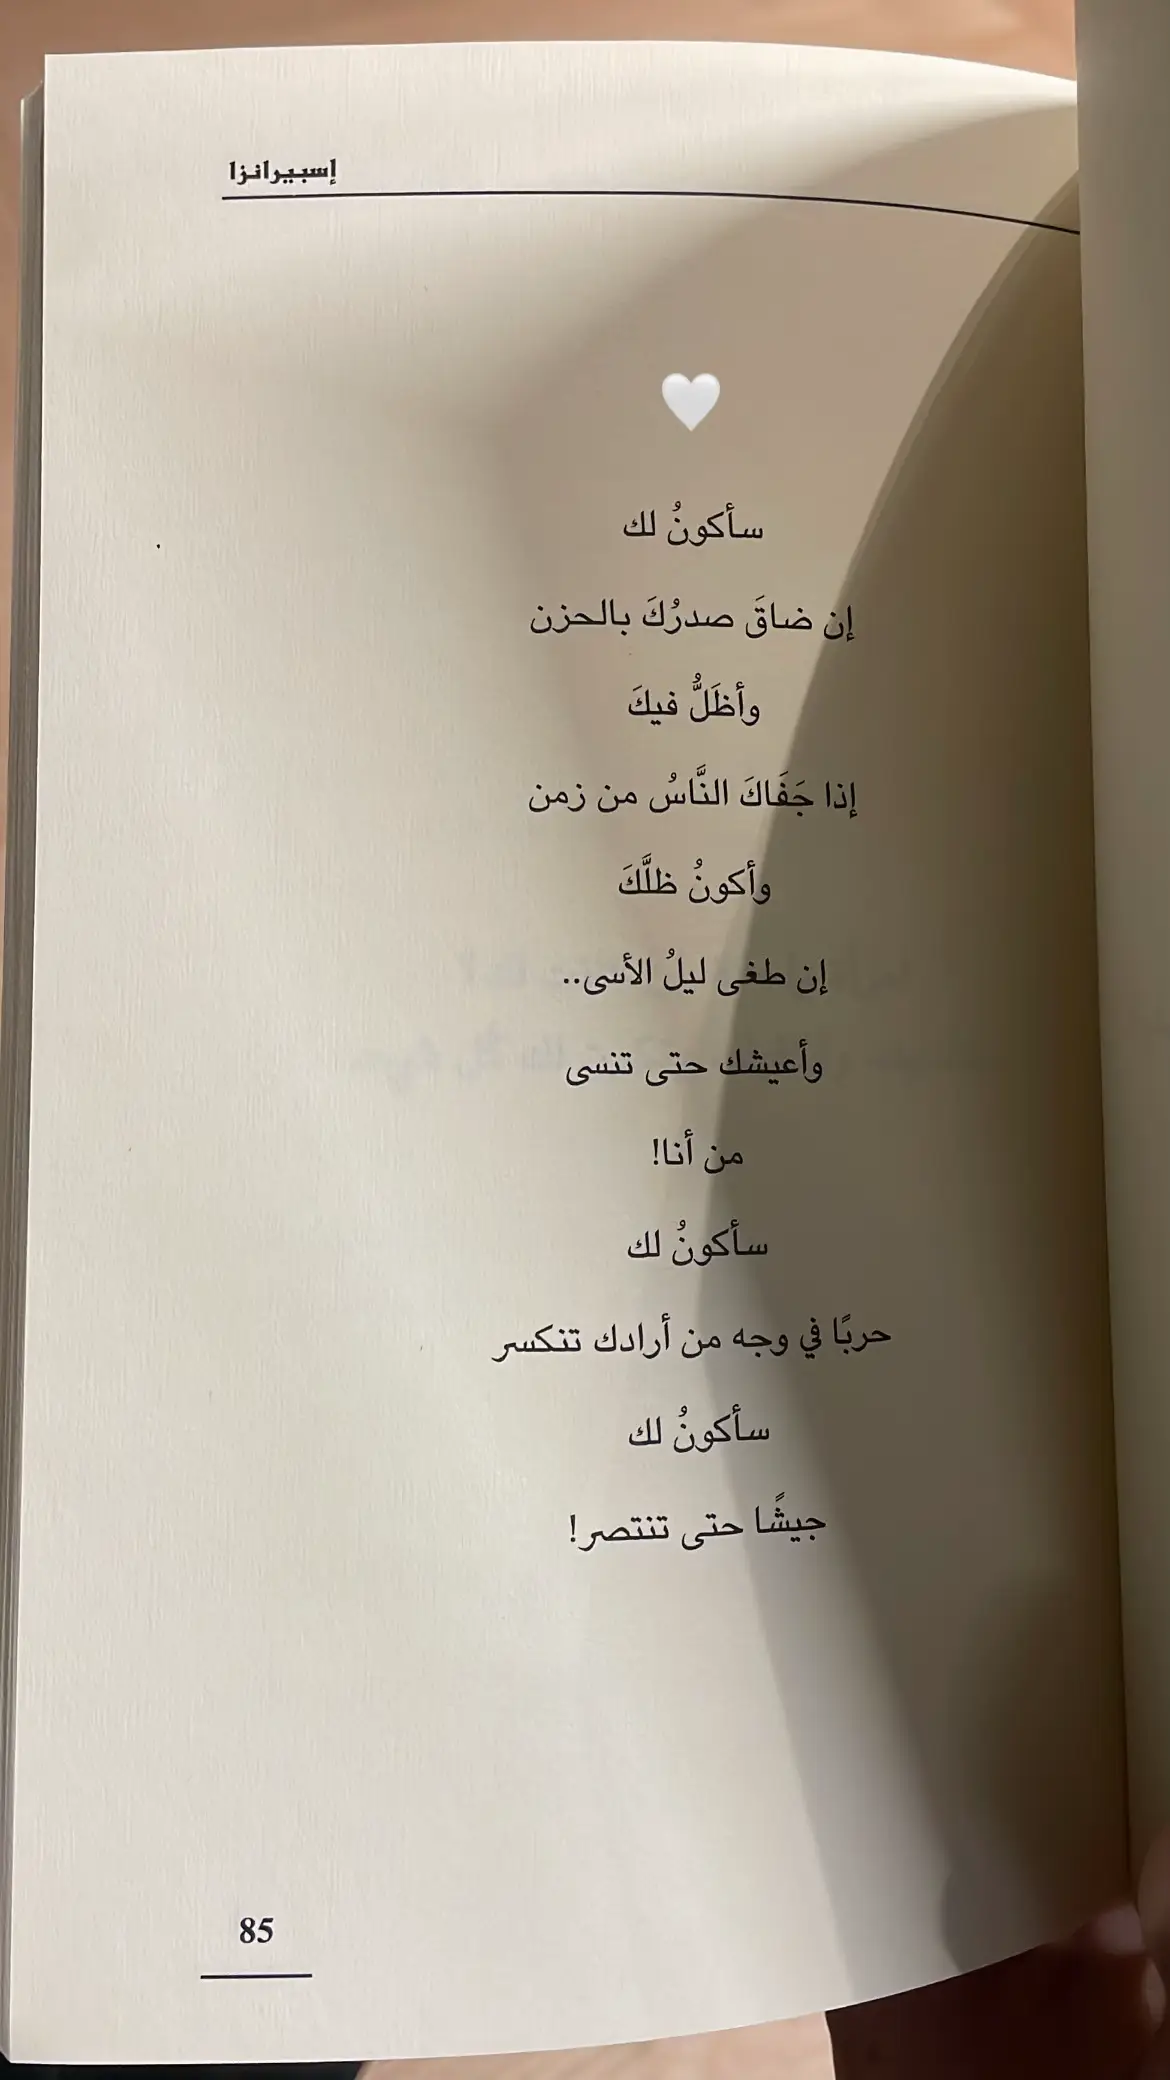 إسبيرانزا
سأكونُ لك
إن ضاقَ صدرُكَ بالحزن
وأظَلُّ فيكَ
إذا جَفَاكَ النَّاسُ من زمن
وأكونُ ظلَّكَ
إن طغى ليلُ الأسى..
وأعيشك حتى تنسى
من أنا!
سأكونُ لك
حربًا في وجه من أرادك تنكسر
سأكونُ لك
جيشًا حتى تنتصر!
85